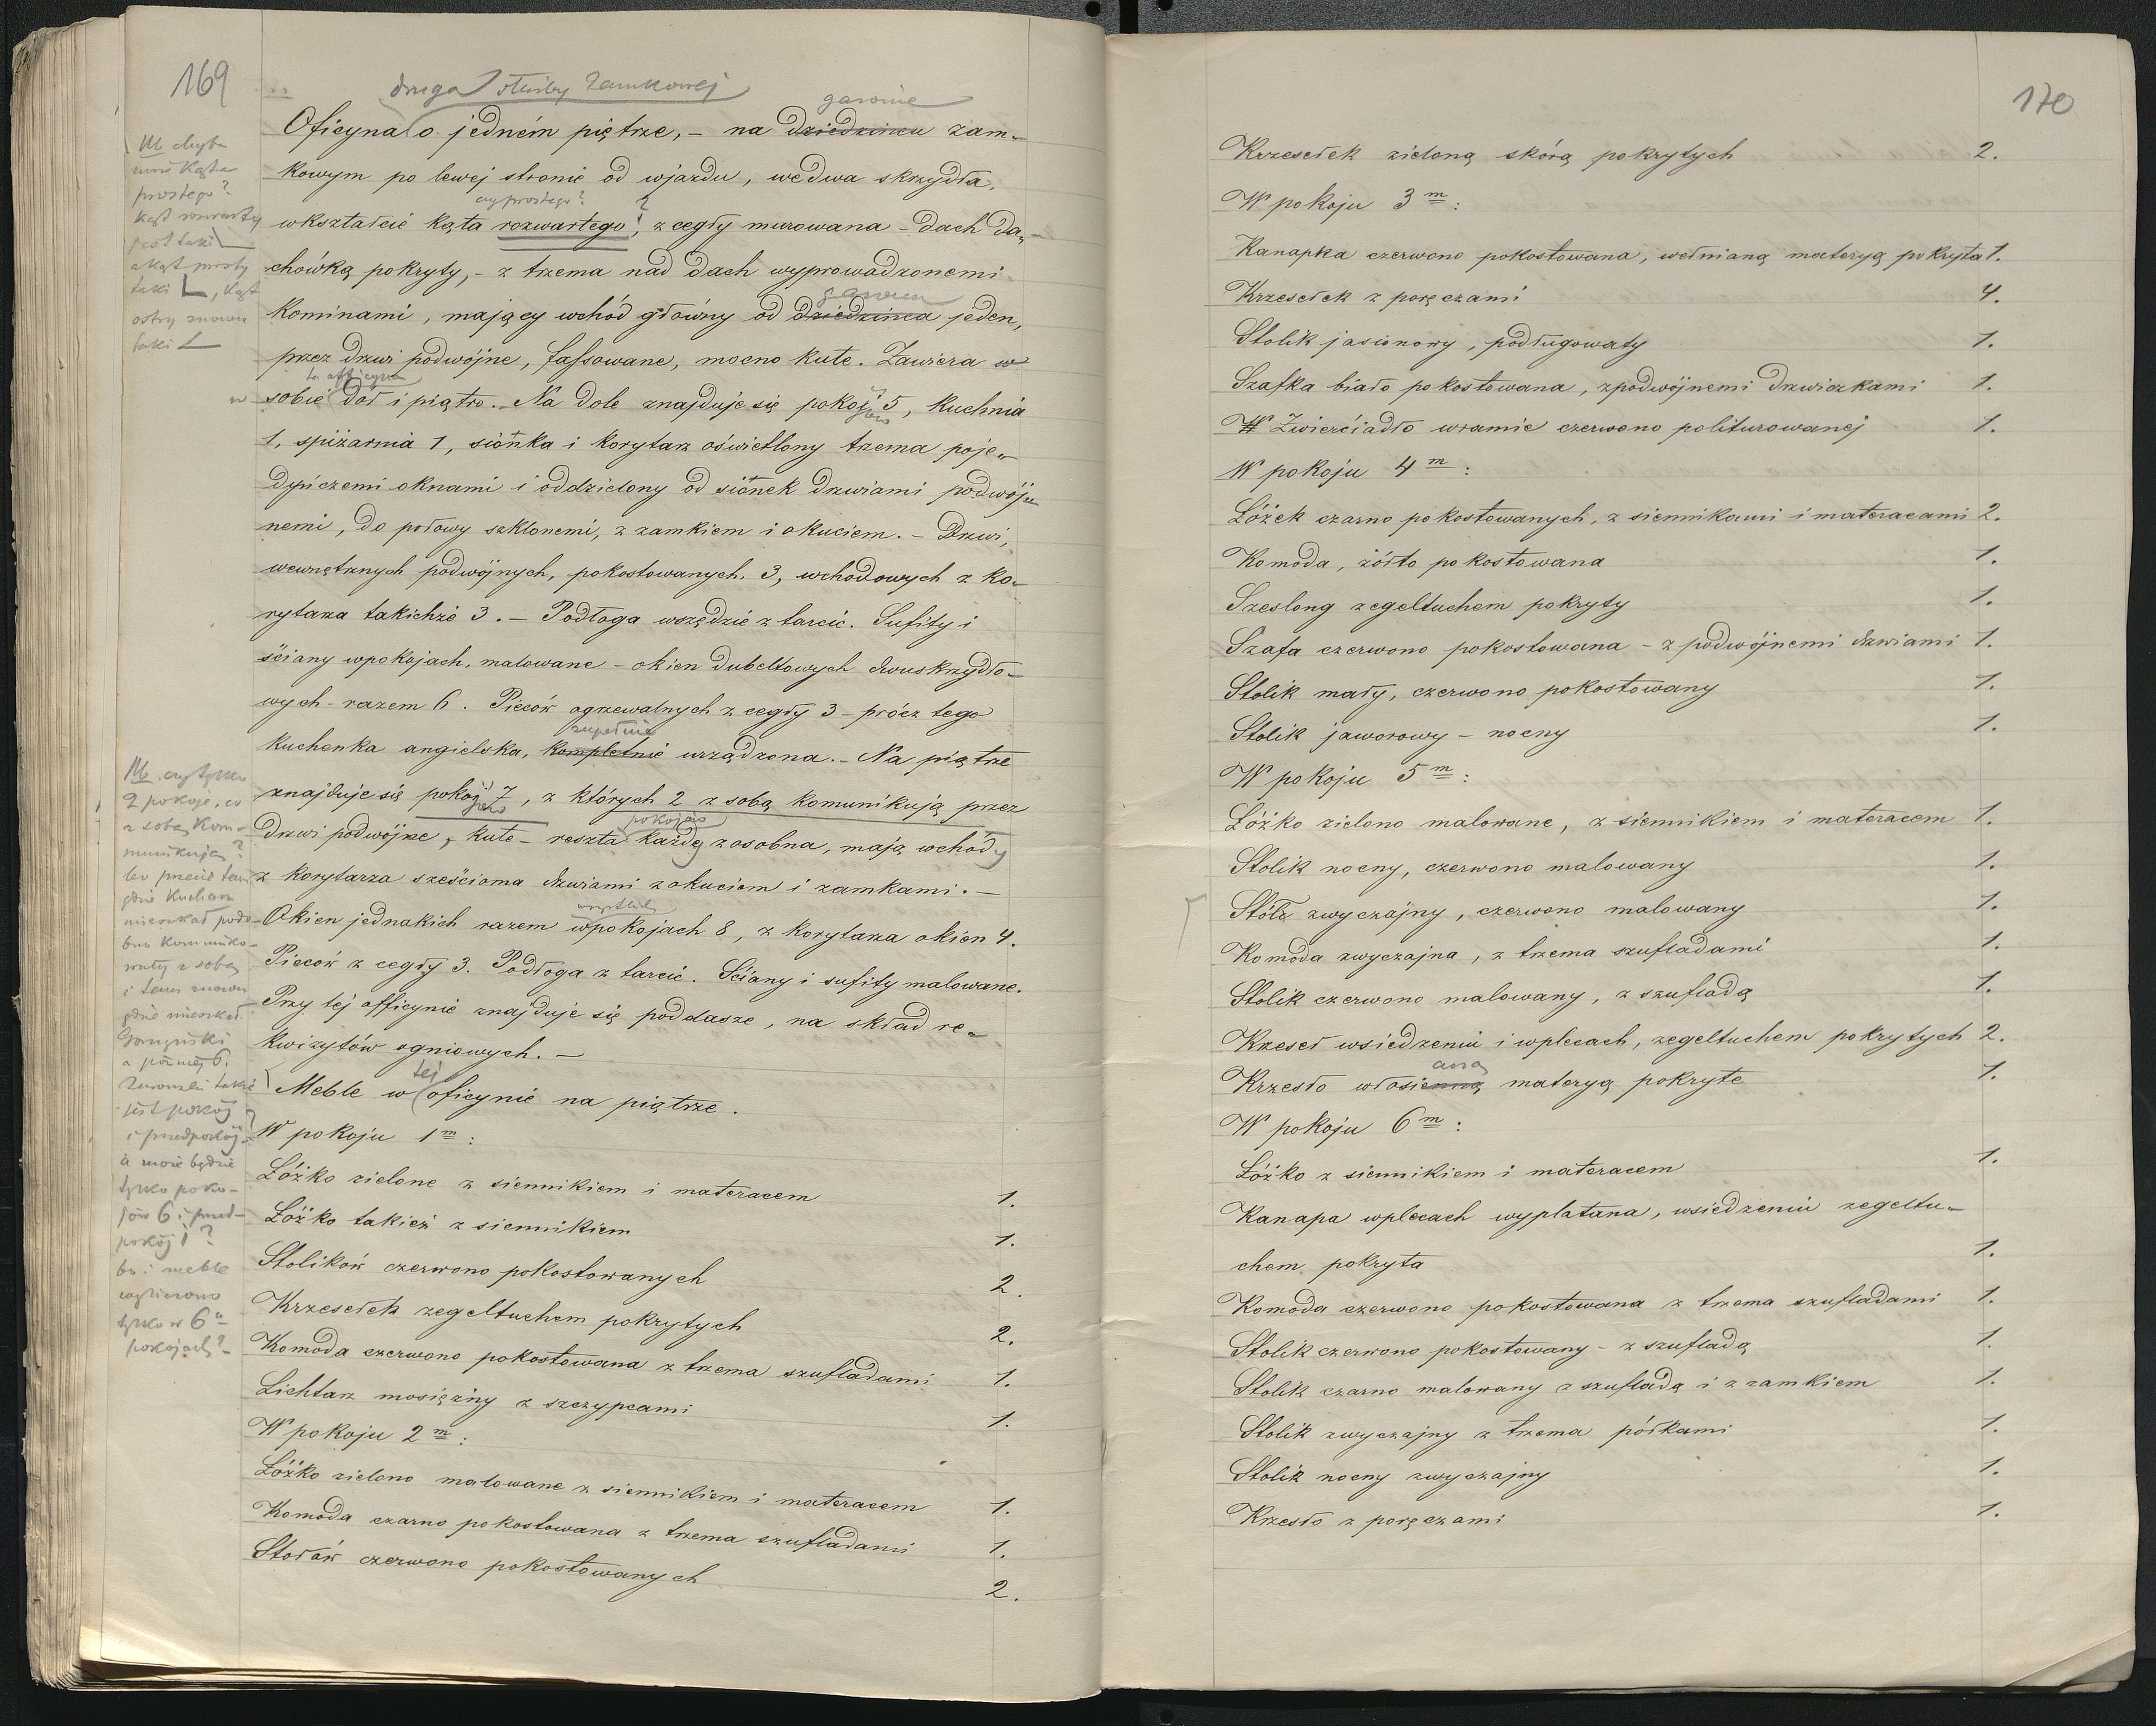 169
druga służby zamkowej
Oficyna o jedném piętrze, – na dziedzińcu zam-
kowym po lewej stronie od wjazdu, wedwa skrzydła,
czy prostego?
wkształcie kąta rozwartego, z cegły murowana – Dach da-
chówką pokryty, – z trzema nad dach wyprowadzonemi
kominami, mający wchód główny od dziedzińca jeden,
przez drzwi podwójne, fassowane, mocno kute. Zawiera w
ta officyna
sobie dół i piątro. – Na dole znajduje się pokoi 5, kuchnia
1, spiżarnia 1, sionka i korytarz oświetlony trzema poje-
dyńczemi oknami i oddzielony od sionek drzwiami podwój-
nemi, do połowy szklonemi, z zamkiem i okuciem. – Drzwi,
wewnętrznych podwójnych, pokostowanych, 3, wchodowych z ko-
rytarza takichże 3. – Podłoga wszędzie z tarcic. Sufity i
ściany wpokojach, malowane – okien dubeltowych dwuskrzydło-
wych – razem 6. Pieców ogrzewalnych z cegły 3 – prócz tego
zupełnie
kuchenka angielska, kompletnie urządzona. – Na piątrze
znajduje się pokoi 7, z których 2 z sobą komunikują przez
pokojów
drzwi podwójne, kute – reszta każdy zosobna, mają wchódy
z korytarza sześcioma drzwiami zokuciem i zamkami. –
wszystkich
Okien jednakich razem wpokojach 8, z korytarza okien 4.
Pieców z cegły 3. Podłoga z tarcic. Ściany i sufity malowane.
Przy tej officynie znajduje się poddasze, na skład re-
kwizytów ogniowych. –
tej
Meble w oficynie na piątrze.
W pokoju 1m:
Łóżko zielone z siennikiem i materacem 1.
Łóżko takież z siennikiem 1.
Stolików czerwono pokostowanych 2.
Krzesełek zegeltuchem pokrytych 2.
Komoda czerwono pokostowana z trzema szufladami 1.
Lichtarz mosiężny z szczypcami 1.
W pokoju 2m:
Łóżko zielono malowane z siennikiem i materacem 1.
Komoda czarno pokostowana z trzema szufladami 1.
Stołów czerwono pokostowanych 2.
chyba
może kąta
prostego?
kąt rozwarty
jest taki
a kąt prosty
taki L, kąt
ostry znowu
taki
czy tylko
2 pokoje, co
z sobą kom-
munikują?
bo przecież tam
gdzie kucharz
mieszkał podo-
bno kommuniko-
wały z sobą
i tam znowu
gdzie mieszkał
a później
także
jest pokój
i przedpokój –
a może będzie
tylko poko-
jów 6 i przed-
pokój 1?
bo i meble
wyliczono
tylko w 6u
pokojach? –
170
Krzesełek zieloną skórą pokrytych 2.
W pokoju 3m:
Kanapka czerwono pokostowana, wełnianą materyą pokryta 1.
Krzesełek z poręczami 4.
Stolik jasionowy, podługowaty 1.
Szafka biało pokostowana, zpodwójnemi drzwiczkami 1.
Zwierciadło wramie czerwono politurowanej 1.
W pokoju 4m:
Łóżek czarno pokostowanych, z siennikami i materacami 2.
Komoda, żółto pokostowana 1.
Szeslong zegeltuchem pokryty 1.
Szafa czerwono pokostowana – z podwójnemi drzwiami 1.
Stolik mały, czerwono pokostowany 1.
Stolik jaworowy – nocny 1.
W pokoju 5m:
Łóżko zielono malowane, z siennikiem i materacem 1.
Stolik nocny, czerwono malowany 1.
Stół zwyczajny, czerwono malowany 1.
Komoda zwyczajna, z trzema szufladami 1.
Stolik czerwono malowany, z szufladą 1.
Krzeseł wsiedzeniu i wplecach, zegeltuchem pokrytych 2.
Krzesło włosienną materyą pokryte 1.
W pokoju 6m:
Łóżko z siennikiem i materacem 1.
Kanapa wplecach wyplatana, wsiedzeniu zegeltu-
chem pokryta 1.
Komoda czerwono pokostowana z trzema szufladami 1.
Stolik czerwono pokostowany – z szufladą 1.
Stolik czarno malowany z szufladą i z zamkiem 1.
Stolik zwyczajny z trzema półkami 1.
Stolik nocny zwyczajny 1.
Krzesło z poręczami 1.